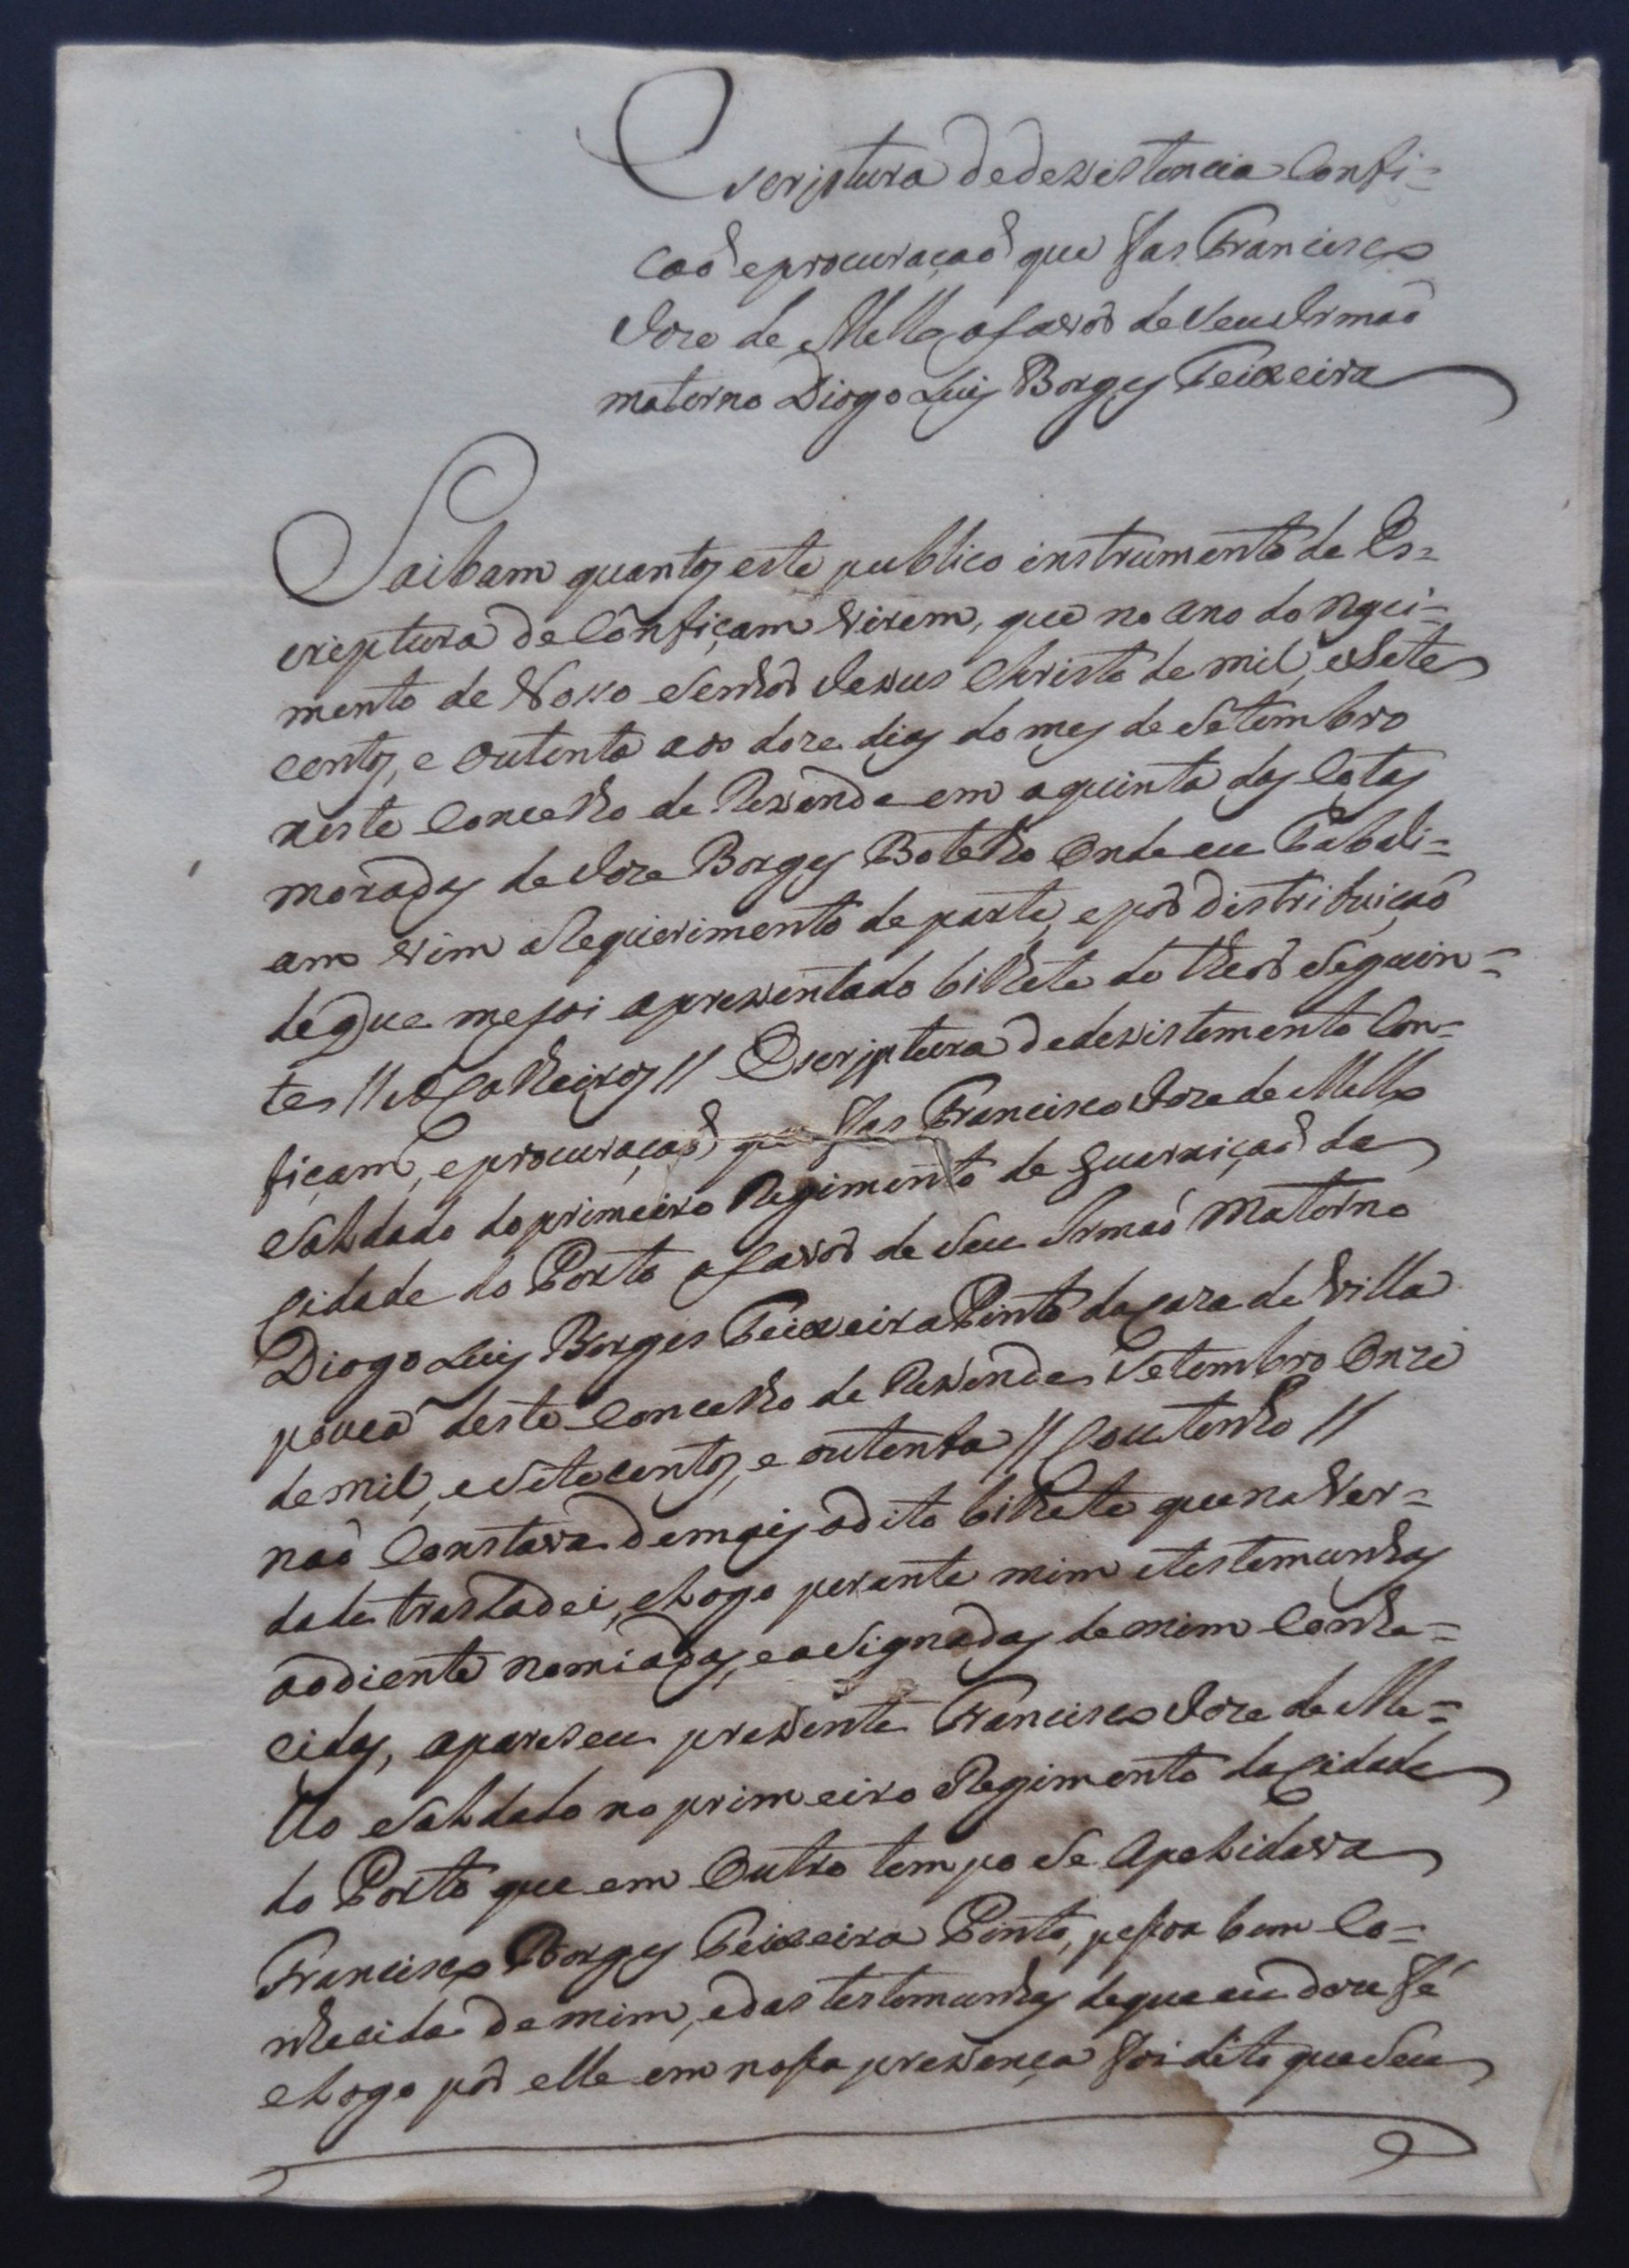 Escriptura de dezistencia Confi=
caô e procuraçaô que fas Francisco
Joze de Mello a favor de seu Irmaô
materno Diogo Luis Borges Teixeira
Saibam quantos este publico instrumento de Es=
criptura de Confiçam virem, que no ano do
mento de Noso Senhor Jezus Christo de mil, e sete
centos, e outenta aos doze dias do mes de Setembro
neste Concelho de Rezende em a quinta das Cotas
moradas de Joze Borges Botelho onde eu Tabali=
am vim a Requerimento de parte, e por distribuiçaô
de que me foi aprezentado bilhete do theor seguin=
te // // Escriptura de dezistemento Con=
fiçam, e procuraçaô que fas Francisco Joze de Mello
Soldado do primeiro Regimento de guarniçaô da
Cidade do Porto a favor de seu Irmaô Materno
Diogo Luis Borges Teixeira Pinto da Caza de Villa
pouca deste Concelho de Rezende Setembro Onze
de mil, e setecentos, e outenta // Coutinho //
naô Constava de mais o dito bilhete que na ver=
dade trasladei, e Logo perante mim e testemunhas
aodiente nomiadas, e asignadas de mim Conhe=
cidas, apareseu prezente Francisco Joze de Me=
llo Soldado no primeiro Regimento da Cidade
do Porto que em Outro tempo se Apelidava
Francisco Borges Teixeira Pinto, pessoa bem Co=
nhecida de mim, e das testemunhas de que eu dou fé
e Logo por elle em nossa prezença foi dito que seu